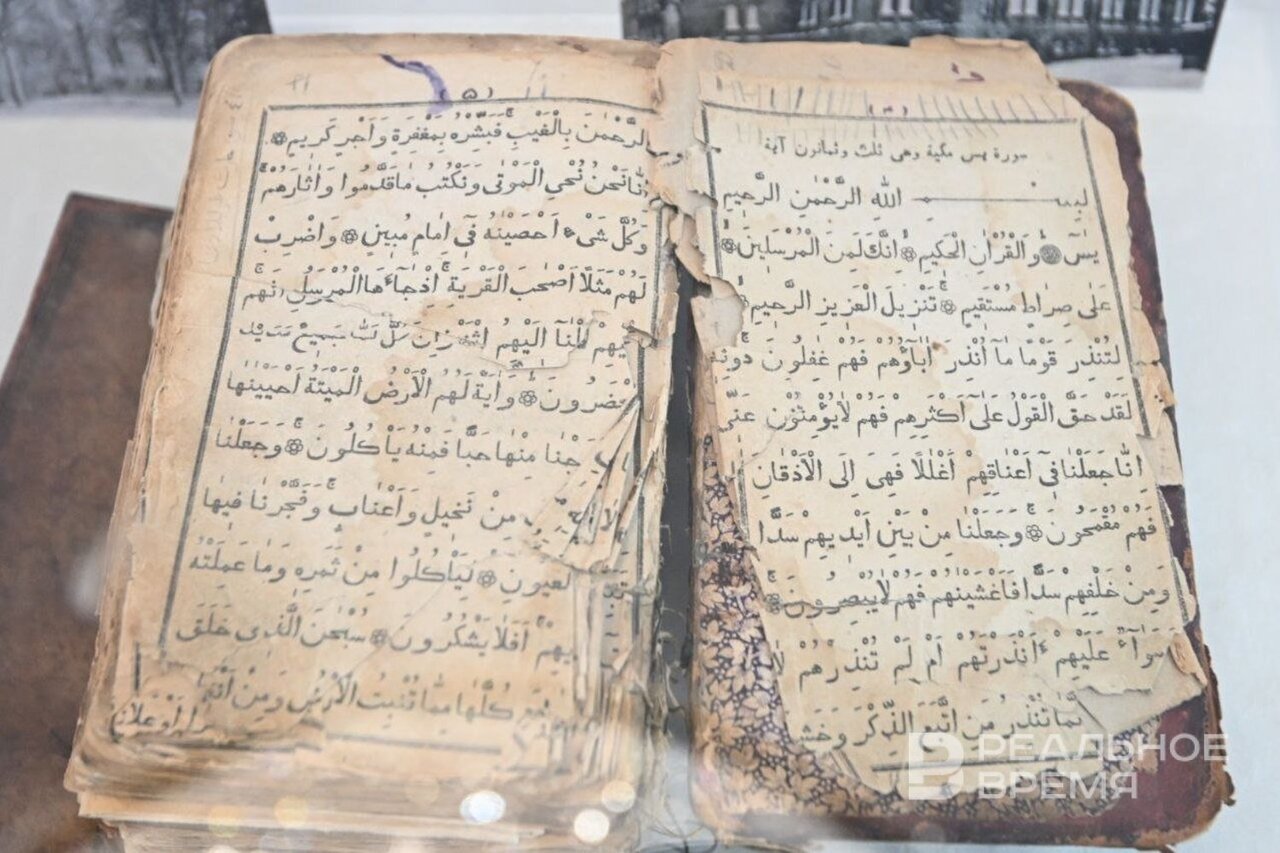 سورة يس مكية وهى ثلث وثمانون آية
بِسْمِ اللّٰهِ الرَّحْمٰنِ الرَّحِيمِ
يٰسٓ وَالْقُرْاٰنِ الْحَكِيمِ اِنَّكَ لَمِنَ الْمُرْسَلِينَ
عَلٰى صِرَاطٍ مُسْتَقِيمٍ تَنْزِيلَ الْعَزِيزِ الرَّحِيمِ
لِتُنْذِرَ قَوْمًا مَٓا اُنْذِرَ اٰبَٓاؤُهُمْ فَهُمْ غٰفِلُونَ
لَقَدْ حَقَّ الْقَوْلُ عَلٰٓى اَكْثَرِهِمْ فَهُمْ لَا يُؤْمِنُونَ
اِنَّا جَعَلْنَا فِٓى اَعْنَاقِهِمْ اَغْلٰلًا فَهِىَ اِلَى الْاَذْقَانِ
فَهُمْ مُقْمَحُونَ وَجَعَلْنَا مِنْ بَيْنِ اَيْدِيهِمْ سَدًّا
وَمِنْ خَلْفِهِمْ سَدًّا فَاَغْشَيْنٰهُمْ فَهُمْ لَا يُبْصِرُونَ
سَوَٓاءٌ عَلَيْهِمْ ءَاَنْذَرْتَهُمْ اَمْ لَمْ تُنْذِرْهُمْ لَا
تُنْذِرُ مَنِ اتَّبَعَ الذِّكْرَ وَخَشِ
(٥)
الرَّحْمٰنَ بِالْغَيْبِ فَبَشِّرْهُ بِمَغْفِرَةٍ وَاَجْرٍ كَرِيمٍ
اِنَّا نَحْنُ نُحْىِ الْمَوْتٰى وَنَكْتُبُ مَا قَدَّمُوا وَاٰثَارَهُمْ
وَكُلَّ شَىْءٍ اَحْصَيْنٰهُ فِٓى اِمَامٍ مُبِينٍ وَاضْرِبْ
لَهُمْ مَثَلًا اَصْحٰبَ الْقَرْيَةِ اِذْ جَٓاءَهَا الْمُرْسَلُ
اِلَيْهِمُ
وَاٰيَةٌ لَهُمُ الْاَرْضُ الْمَيْتَةُ اَحْيَيْنٰهَا
مِنْهَا حَبًّا فَمِنْهُ يَاْكُلُونَ وَجَعَلْنَا
مِنْ نَخِيلٍ وَاَعْنَابٍ وَفَجَّرْنَا فِيهَا
الْعُيُونِ لِيَاْكُلُوا مِنْ ثَمَرِهِ وَمَا عَمِلَتْهُ
اَيْدِيهِمْ اَفَلَا يَشْكُرُونَ سُبْحٰنَ الَّذِى خَلَقَ
كُلَّهَا مِمَّا تُنْبِتُ الْاَرْضُ وَمِنْ
РЕАЛЬНОЕ
ВРЕМЯ